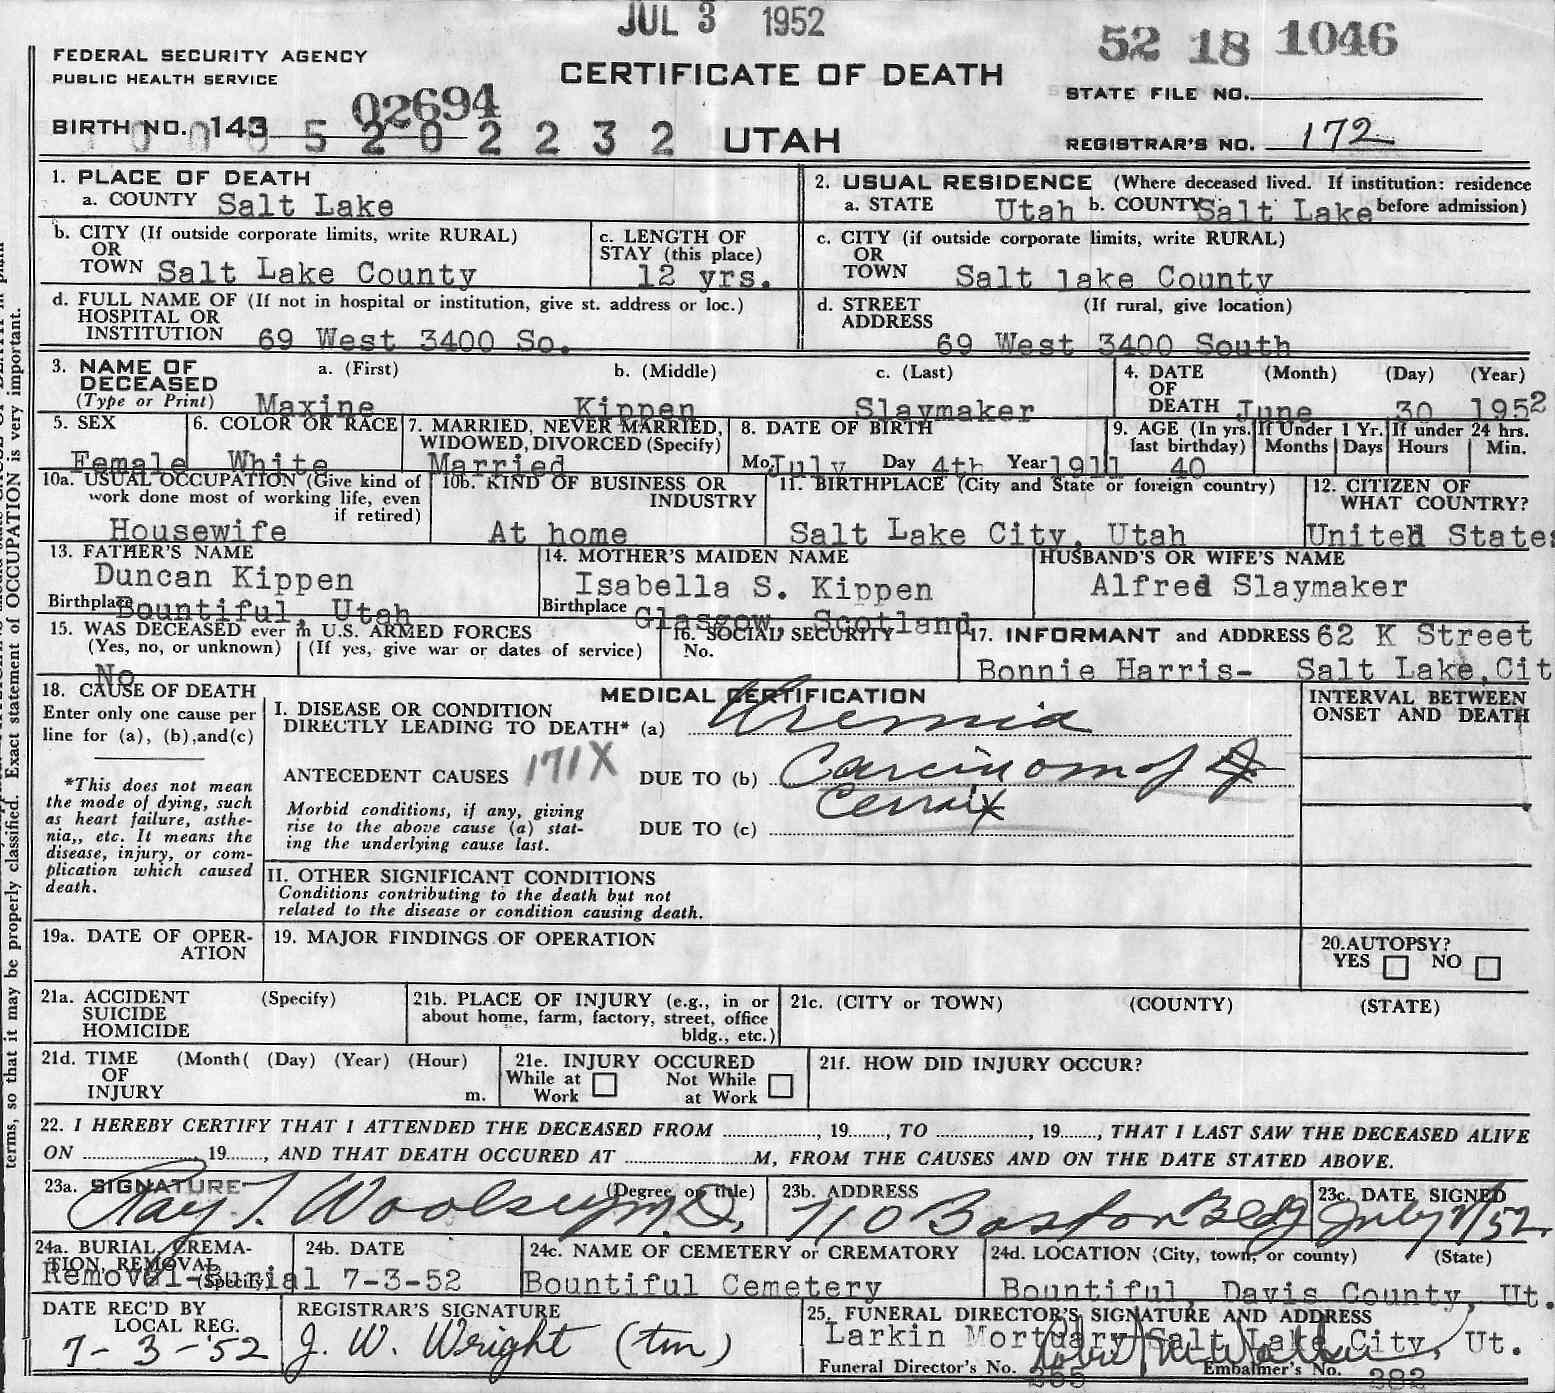 JUL 3 1952
52 18 1046
FEDERAL SECURITY AGENCY
PUBLIC HEALTH SERVICE
CERTIFICATE OF DEATH
STATE FILE NO.
02694
BIRTH NO. 143 5 2 0 2 2 3 2 UTAH
REGISTRAR'S NO. 172
1. PLACE OF DEATH
a. COUNTY Salt Lake
2. USUAL RESIDENCE (Where deceased lived. If institution: residence
a. STATE Utah b. COUNTY Salt Lake before admission)
b. CITY (If outside corporate limits, write RURAL)
OR
TOWN Salt Lake County
c. LENGTH OF
STAY (this place)
12 yrs.
c. CITY (if outside corporate limits, write RURAL)
OR
TOWN Salt lake County
d. FULL NAME OF (If not in hospital or institution, give st. address or loc.)
HOSPITAL OR
INSTITUTION 69 West 3400 So.
d. STREET (If rural, give location)
ADDRESS
69 West 3400 South
3. NAME OF a. (First) b. (Middle) c. (Last)
DECEASED
(Type or Print) Maxine Kippen Slaymaker
4. DATE (Month) (Day) (Year)
OF
DEATH June 30 1952
5. SEX
Female
6. COLOR OR RACE
White
7. MARRIED, NEVER MARRIED,
WIDOWED, DIVORCED (Specify)
Married
8. DATE OF BIRTH
Mo. July Day 4th Year 1911
9. AGE (In yrs.
last birthday)
40
If Under 1 Yr.
Months Days
If under 24 hrs.
Hours Min.
10a. USUAL OCCUPATION (Give kind of
work done most of working life, even
if retired)
Housewife
10b. KIND OF BUSINESS OR
INDUSTRY
At home
11. BIRTHPLACE (City and State or foreign country)
Salt Lake City, Utah
12. CITIZEN OF
WHAT COUNTRY?
United States
13. FATHER'S NAME
Duncan Kippen
Birthplace Bountiful, Utah
14. MOTHER'S MAIDEN NAME
Isabella S. Kippen
Birthplace Glasgow, Scotland
HUSBAND'S OR WIFE'S NAME
Alfred Slaymaker
15. WAS DECEASED ever in U.S. ARMED FORCES
(Yes, no, or unknown) (If yes, give war or dates of service)
No
16. SOCIAL SECURITY
No.
17. INFORMANT and ADDRESS 62 K Street
Bonnie Harris- Salt Lake, Cit
18. CAUSE OF DEATH
Enter only one cause per
line for (a), (b), and(c)
*This does not mean
the mode of dying, such
as heart failure, asthe-
nia,, etc. It means the
disease, injury, or com-
plication which caused
death.
MEDICAL CERTIFICATION
I. DISEASE OR CONDITION
DIRECTLY LEADING TO DEATH* (a) Uremia
ANTECEDENT CAUSES 171X DUE TO (b) Carcinom of
Cervix
Morbid conditions, if any, giving
rise to the above cause (a) stat-
ing the underlying cause last.
DUE TO (c)
INTERVAL BETWEEN
ONSET AND DEATH
II. OTHER SIGNIFICANT CONDITIONS
Conditions contributing to the death but not
related to the disease or condition causing death.
19a. DATE OF OPER-
ATION
19. MAJOR FINDINGS OF OPERATION
20. AUTOPSY?
YES NO
21a. ACCIDENT (Specify)
SUICIDE
HOMICIDE
21b. PLACE OF INJURY (e.g., in or
about home, farm, factory, street, office
bldg., etc.)
21c. (CITY or TOWN) (COUNTY) (STATE)
21d. TIME (Month( (Day) (Year) (Hour)
OF
INJURY m.
21e. INJURY OCCURED
While at Work Not While at Work
21f. HOW DID INJURY OCCUR?
22. I HEREBY CERTIFY THAT I ATTENDED THE DECEASED FROM ............, 19......, TO ............, 19......, THAT I LAST SAW THE DECEASED ALIVE
ON ............ 19......, AND THAT DEATH OCCURED AT ............M, FROM THE CAUSES AND ON THE DATE STATED ABOVE.
23a. SIGNATURE (Degree or title)
Ray T. Woolsey M.D.
23b. ADDRESS
710 Boston Bldg
23c. DATE SIGNED
July 2/52
24a. BURIAL, CREMA-
TION, REMOVAL
(Specify)
Removal-Burial
24b. DATE
7-3-52
24c. NAME OF CEMETERY or CREMATORY
Bountiful Cemetery
24d. LOCATION (City, town, or county) (State)
Bountiful, Davis County, Ut.
DATE REC'D BY
LOCAL REG.
7-3-'52
REGISTRAR'S SIGNATURE
J. W. Wright (tm)
25. FUNERAL DIRECTOR'S SIGNATURE AND ADDRESS
Larkin Mortuary Salt Lake City, Ut.
Funeral Director's No. 265 Embalmer's No. 282
terms, so that it may be properly classified. Exact statement of OCCUPATION is very important.